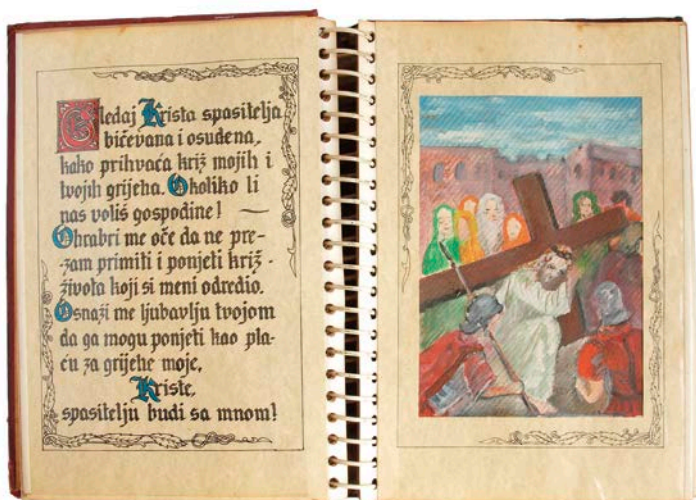 Gledaj Krista spasitelja
bičevana i osuđena,
kako prihvaća križ mojih i
tvojih grijeha. Okoliko li
nas voliš gospodine! —
Ohrabri me oče da ne pre-
-zam primiti i ponjeti križ -
života koji si meni odredio.
Osnaži me ljubavlju tvojom
da ga mogu ponjeti kao pla-
ću za grijehe moje,
Kriste,
spasitelju budi sa mnom!